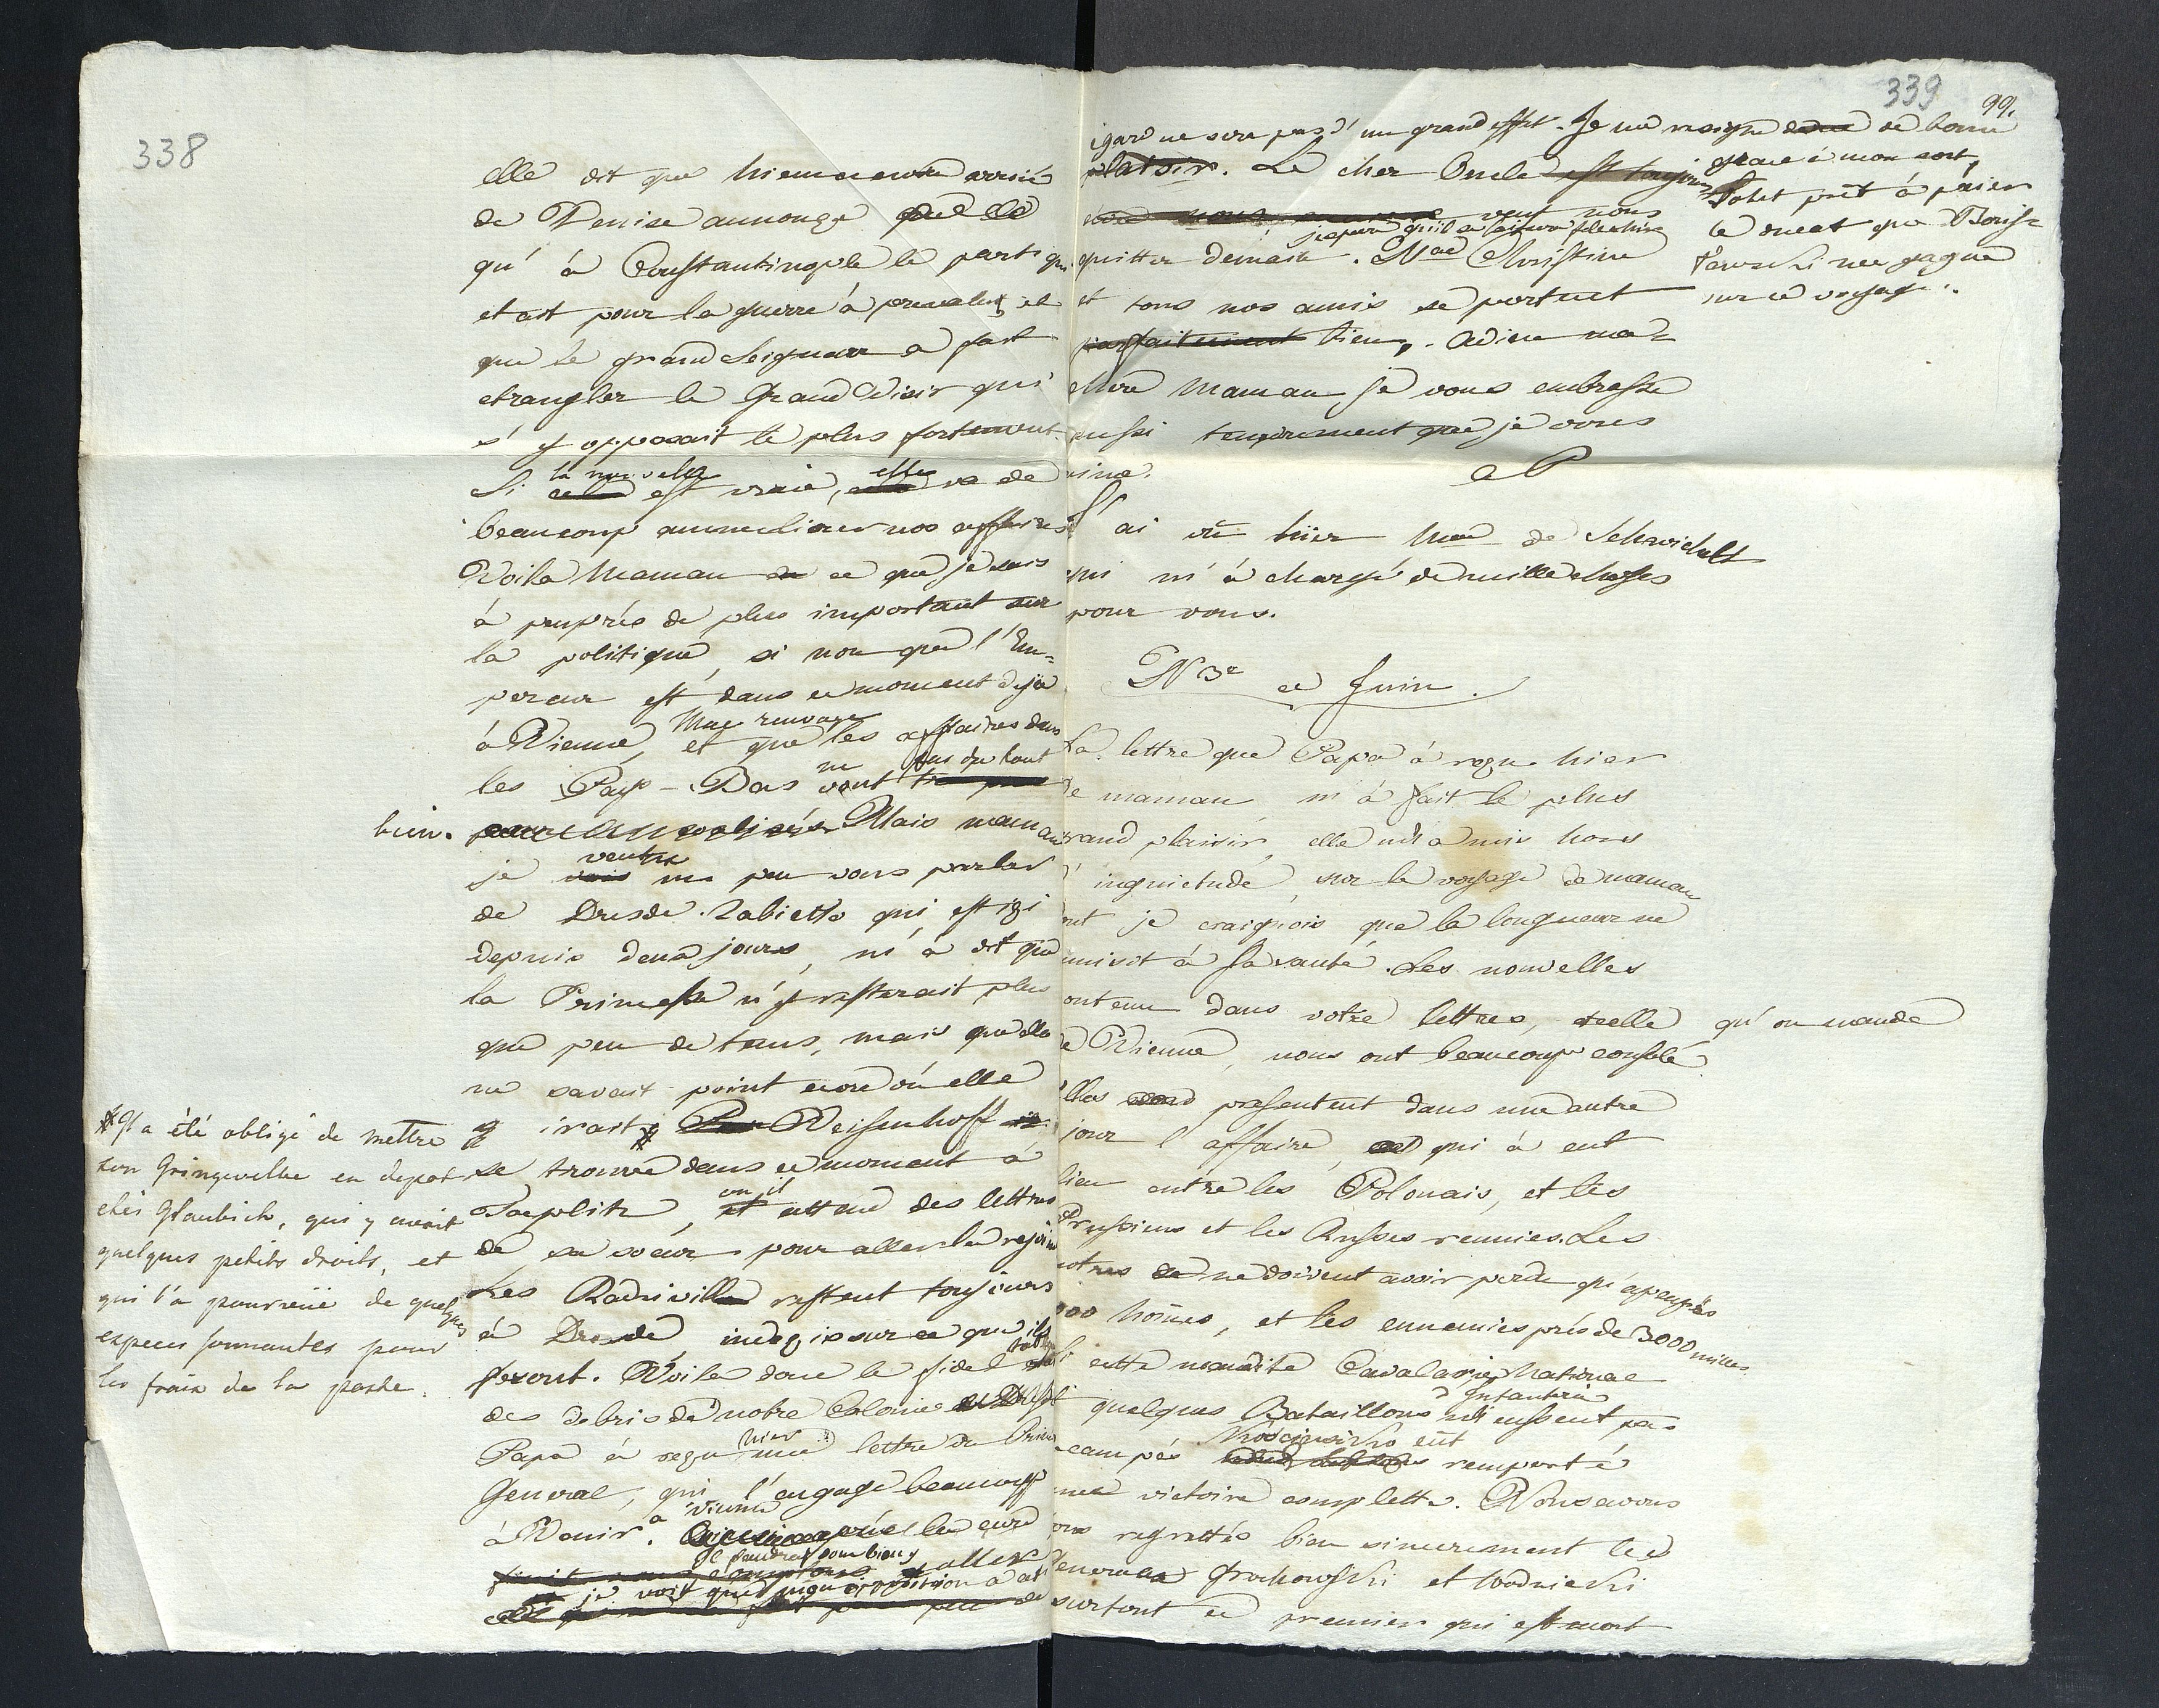 338
elle dit que hier un courié arrivé
de Venise annonçe
qu' à Constantinople le parti qui
etait pour la guerre à prevalut, et
que le grand Seigneur a fait
etrangler le Grand Visir qui
s' y opposait le plus fortement.
la nouvelle elle
Si est vraie, va de
beaucoup ammeliorer nos affaires
Voila Maman ce que je sais
à peuprés de plus important sur
la politique, si non que l'Em=
pereur est dans ce moment deja
à Vienne, et que les affaires dans
ne pas du tout
les Pays-Bas vont
bien. Mais maman
veux
je un peu vous parler
de Dresde. Zabiello qui est içi
depuis deux jours, m' à dit que
la Princesse n'y resterait plus
que peu de tems, mais quelle
ne savait point encore où elle
irait Weisenhoff
se trouve dans ce moment à
où il
Toeplitz, attend des lettres
de sa soeur pour aller la rejoindre
Les Radzivill restent toujours
à Dresde, indeçis sur ce que ils
feront. Voila donc le fidel tableau
des debris de notre Colonie
hier
Papa à reçu une lettre du Prince
General, qui l'engage beaucoup
à Vienne
à Venir.
Il faudrat bien y aller
je voit que
* Il a été obligé de mettre
son Gringuelbe en depot
chés Glaubich, qui y avait
quelques petits droits, et
qui l'a pourvuë de quelques
especes sonnantes pour
les fraix de la poste.
339
99.
égard ne sera pas d' un grand effet. Je me resigne de bonne
grace à mon sort,
plaisir. Le cher Oncle est toujours
veut nous
j'espere qu'il se laissera flechire
quitter demain. Mad Christine
et tous nos amis se portent
parfaitement bien. Adieu ma
chere Maman je vous embrasse
aussi tendrement que je vous
aime.
aP
Potot prêt à païer
le ducat que Boris=
lawski me gagne
sur ce voyage.
J' ai vû hier Mad de Schwichelt
qui m' à chargé de mille choses
pour vous.
N 3e ce Juin.
La lettre que Papa à reçu hier
de maman m' à fait le plus
grand plaisir, elle m'a mis hors
d' inquietude, sur le voyage de maman
dont je craignois que la longueur ne
nuisit à sa santé. Les nouvelles
contenu dans votre lettres, et celle qu'on mande
de Vienne, nous ont beaucoup consolé.
Elles presentent dans une autre
jour l' affaire, qui à eut
lieu entre les Polonais, et les
Prussiens et les Russes reunies. Les
notres ne doivent avoir perdu qu'apeuprès
000 hoṁes, et les ennemies prés de 3000 milles.
Si cette maudite Cavalarie National
d'Infanterie
et quelques Bataillons n'eussent pas
Kościuszko eût
decampés remporté
une victoire complette. Nous avons
tous regrettés bien sincerement les
Generaux Grochowski et Wodzicki
surtout le premier qui est mort